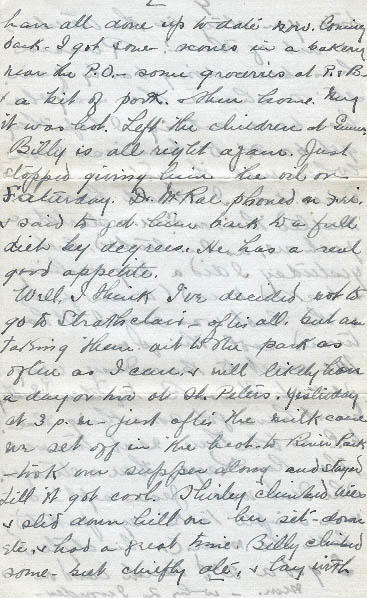 2
hair all done up to date - now. Coming
back - I got some scones in a bakery
near the P.O. - some groceries at P. & B.
& a bit of pork. Then home. My
it was hot. Left the children at
Billy is all right again. Just
stopped giving him the oil on
Saturday. Dr. McRae phoned on Fri.
& said to get him back to a full
diet by degrees. He has a real
good appetite.
Well, I think I've decided not to
go to Strathclair - after all, but am
taking them out to the park as
often as I can & will likely have
a day or two at St. Peters. Yesterday
at 3 p.m - just after the milk came
we set off in the heat to River Park
- took our supper along and stayed
till it got cool. Shirley climbed trees
& slid down hill on her set-down
etc. & had a great time. Billy climbed
some - but chiefly ate, & lay with